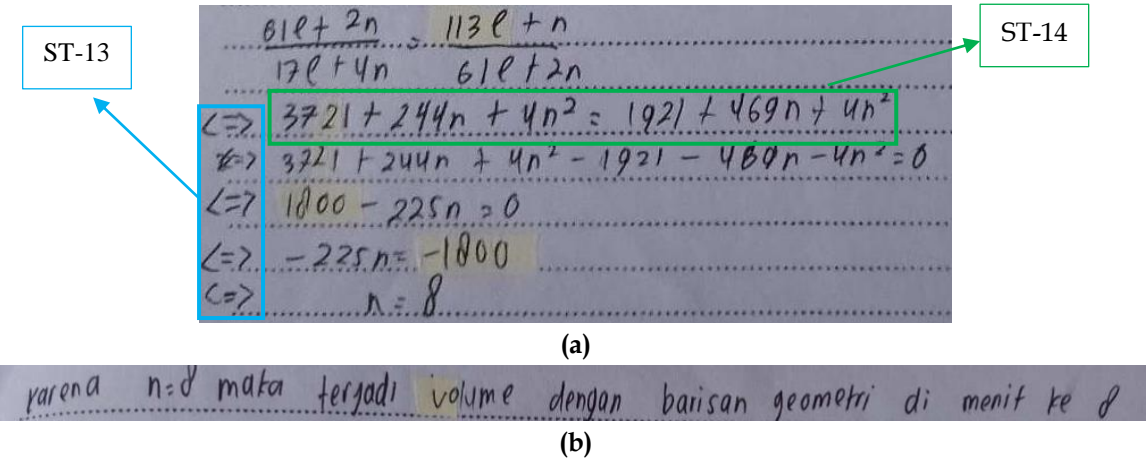 ST-13
ST-14
61ℓ + 2n / 17ℓ + 4n = 113ℓ + n / 61ℓ + 2n
<=> 3721 + 244n + 4n² = 1921 + 469n + 4n²
<=> 3721 + 244n + 4n² - 1921 - 469n - 4n² = 0
<=> 1800 - 225n = 0
<=> -225n = -1800
<=> n = 8
(a)
karena n=8 maka terjadi volume dengan barisan geometri di menit ke 8
(b)